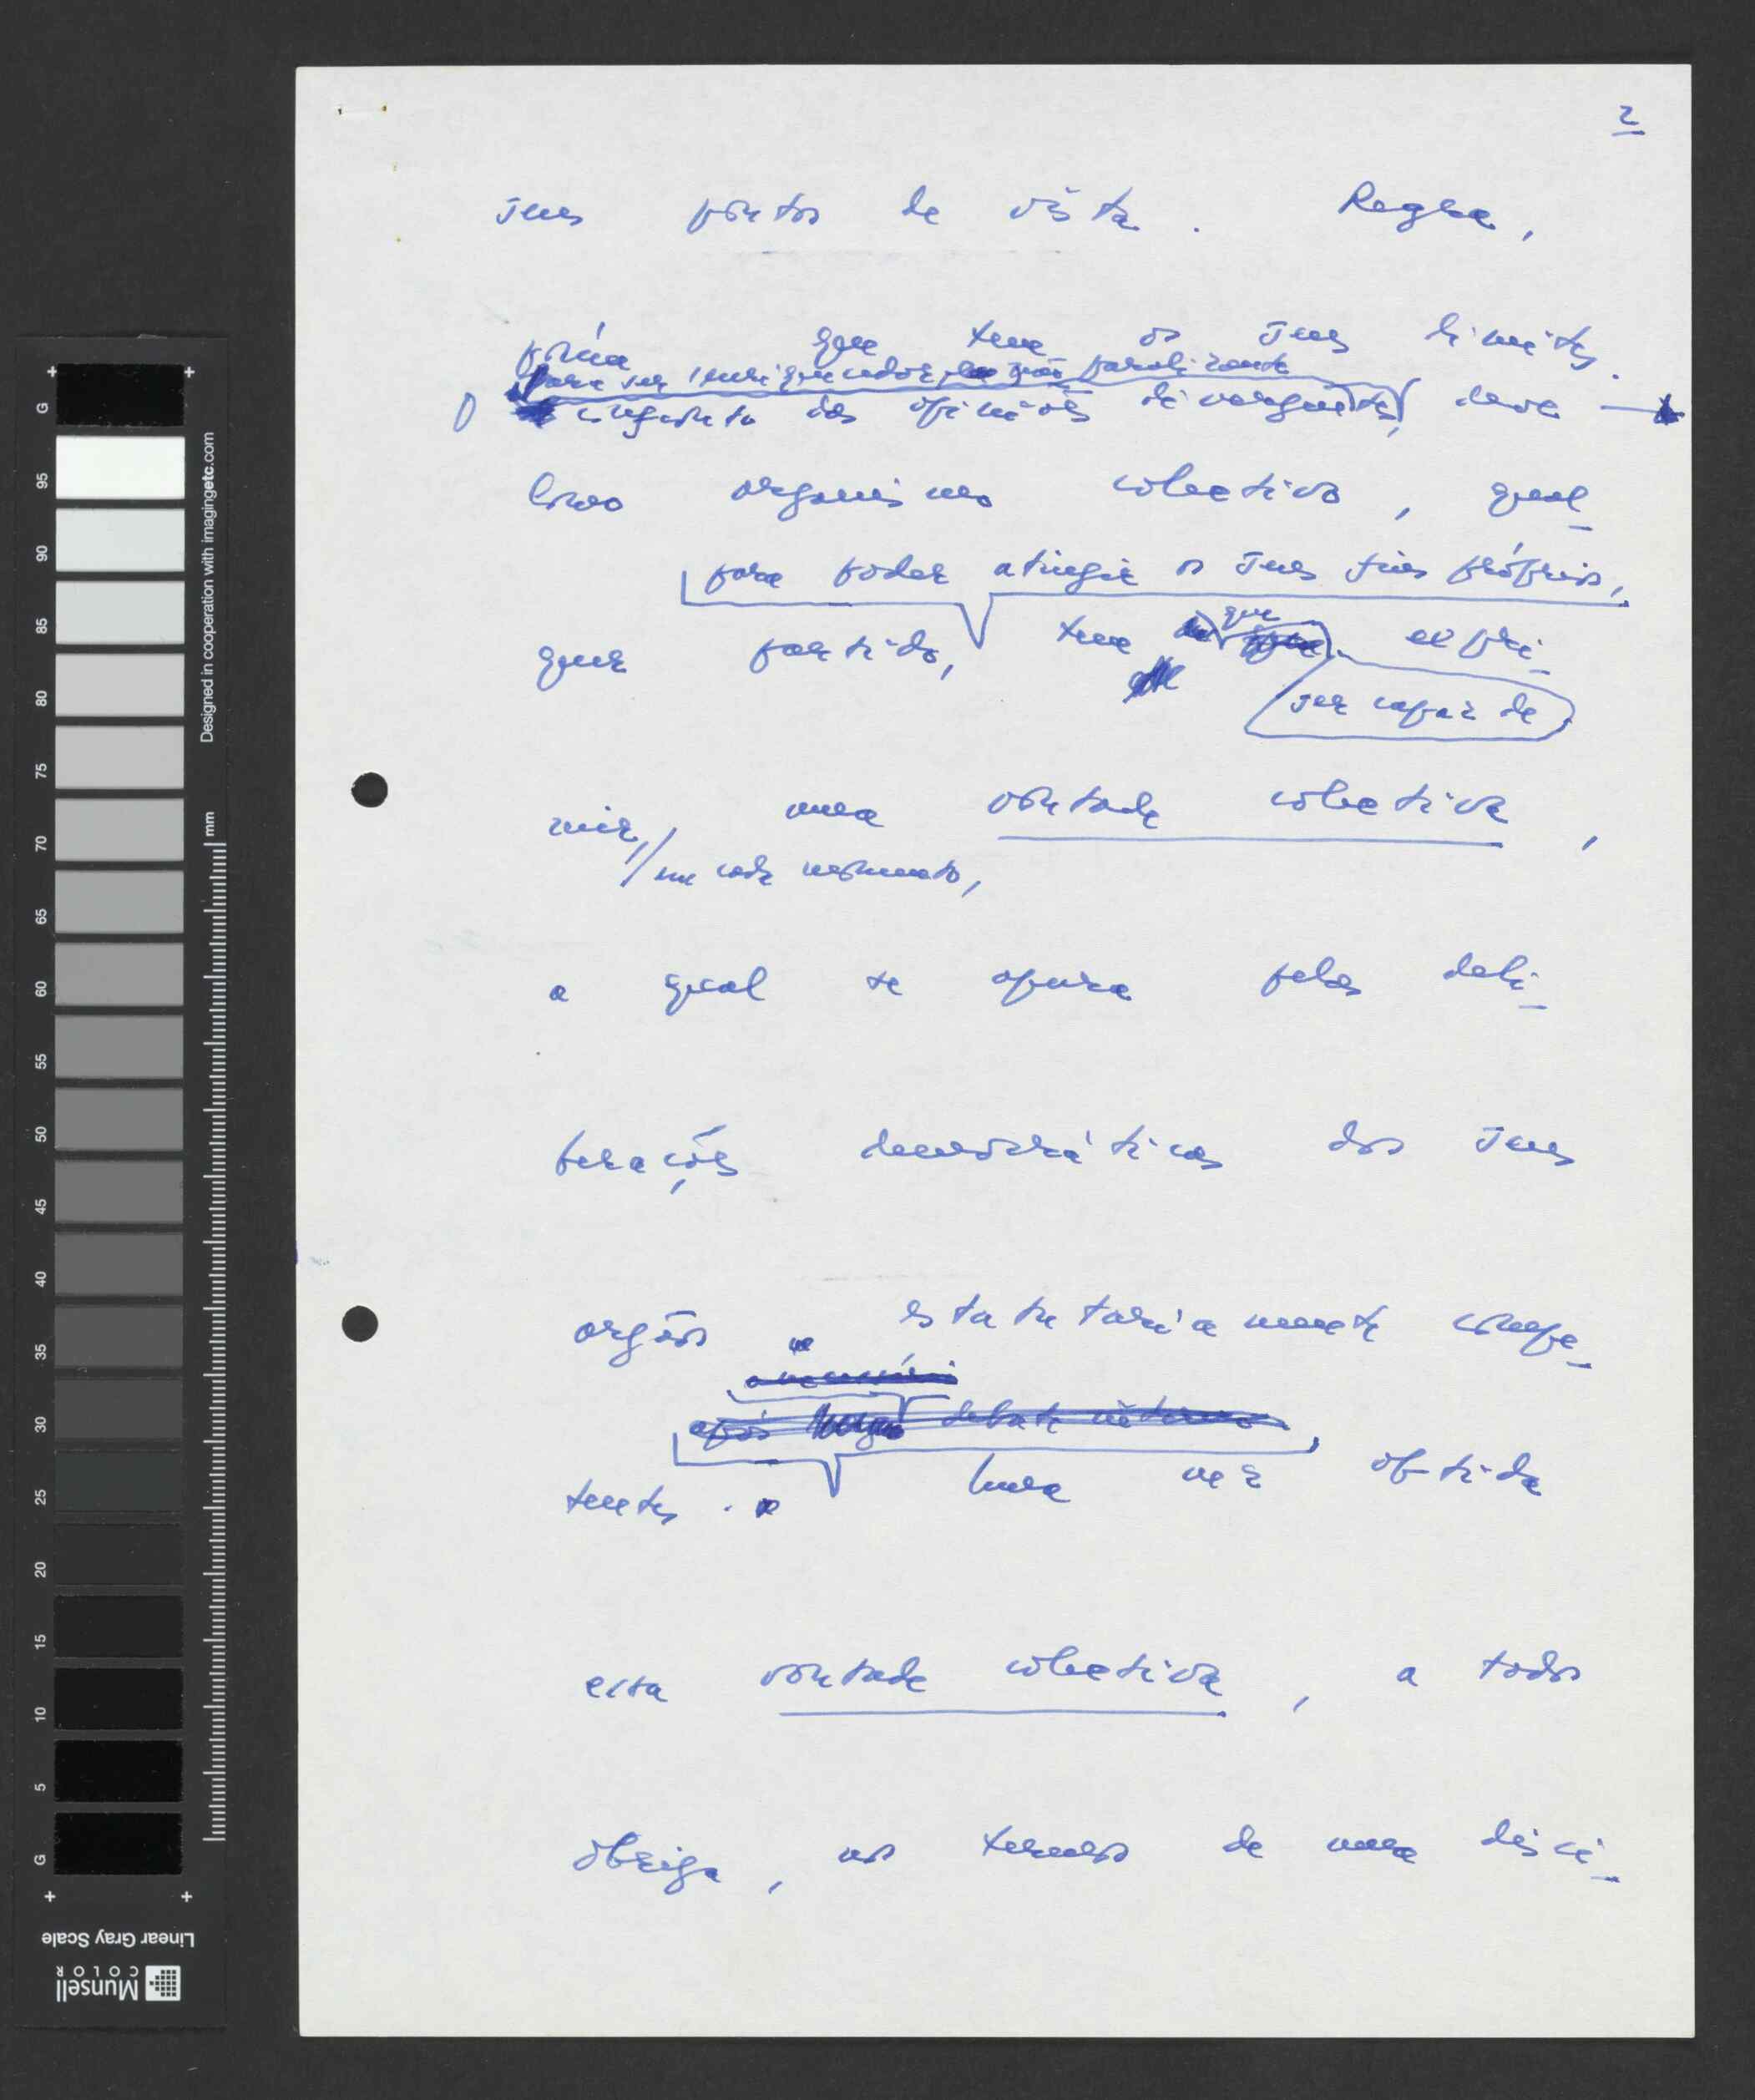 2
seus pontos de vista. Regra,
porém que tem os seus limites.
para ser enriquecedor e não paralizante
O confronto das opiniões divergentes, deve
Como organismo colectivo, qual-
para poder atingir os seus fins próprios,
quer partido, tem que expri-
ser capaz de
mir, uma vontade colectiva,
em cada momento,
a qual se apura pelas deli-
berações democráticas dos seus
orgãos estatutariamente compe-
após longo debate interno,
tentes. Uma vez obtida
essa vontade colectiva, a todos
obriga, nos termos de uma disci-
Designed in cooperation with imagingetc.com
mm
G 95 90 85 80 75 70 65 60 55 50 45 40 35 30 25 20 15 10 5 G
Linear Gray Scale
Munsell
COLOR